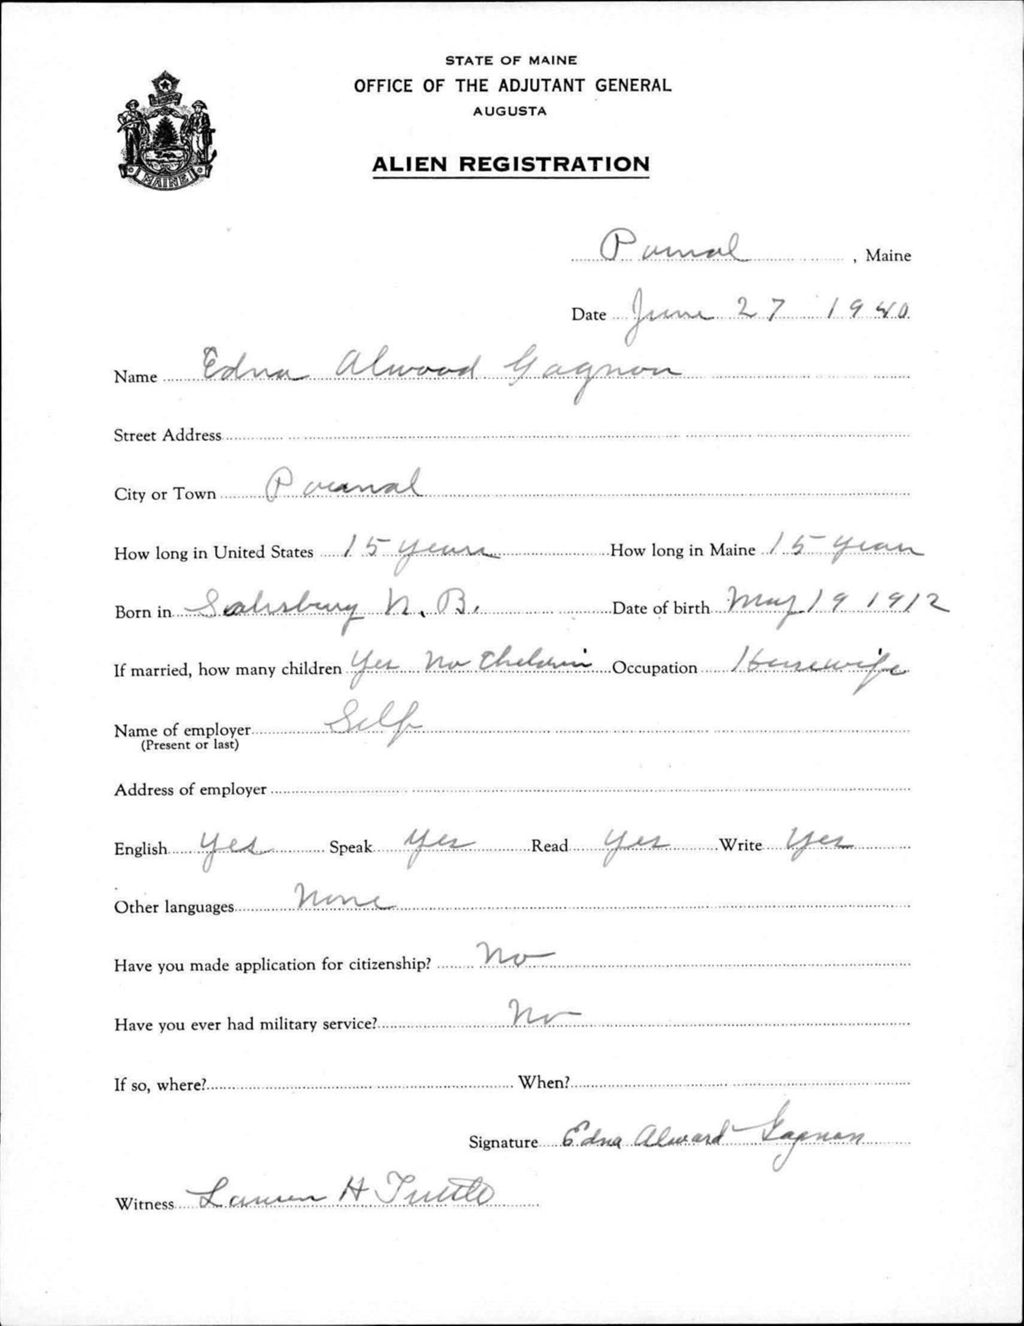 STATE OF MAINE
OFFICE OF THE ADJUTANT GENERAL
AUGUSTA
ALIEN REGISTRATION
MAINE
Pownal, Maine
Date June 27 1940
Name Edna Alwood Gagnon
Street Address
City or Town Pownal
How long in United States 15 years How long in Maine 15 years
Born in Salisbury N.B. Date of birth May 19 1912
If married, how many children Yes No Children Occupation Housewife
Name of employer Self
(Present or last)
Address of employer
English Yes Speak Yes Read Yes Write Yes
Other languages None
Have you made application for citizenship? No
Have you ever had military service? No
If so, where? When?
Signature Edna Alward Gagnon
Witness H Tuttle